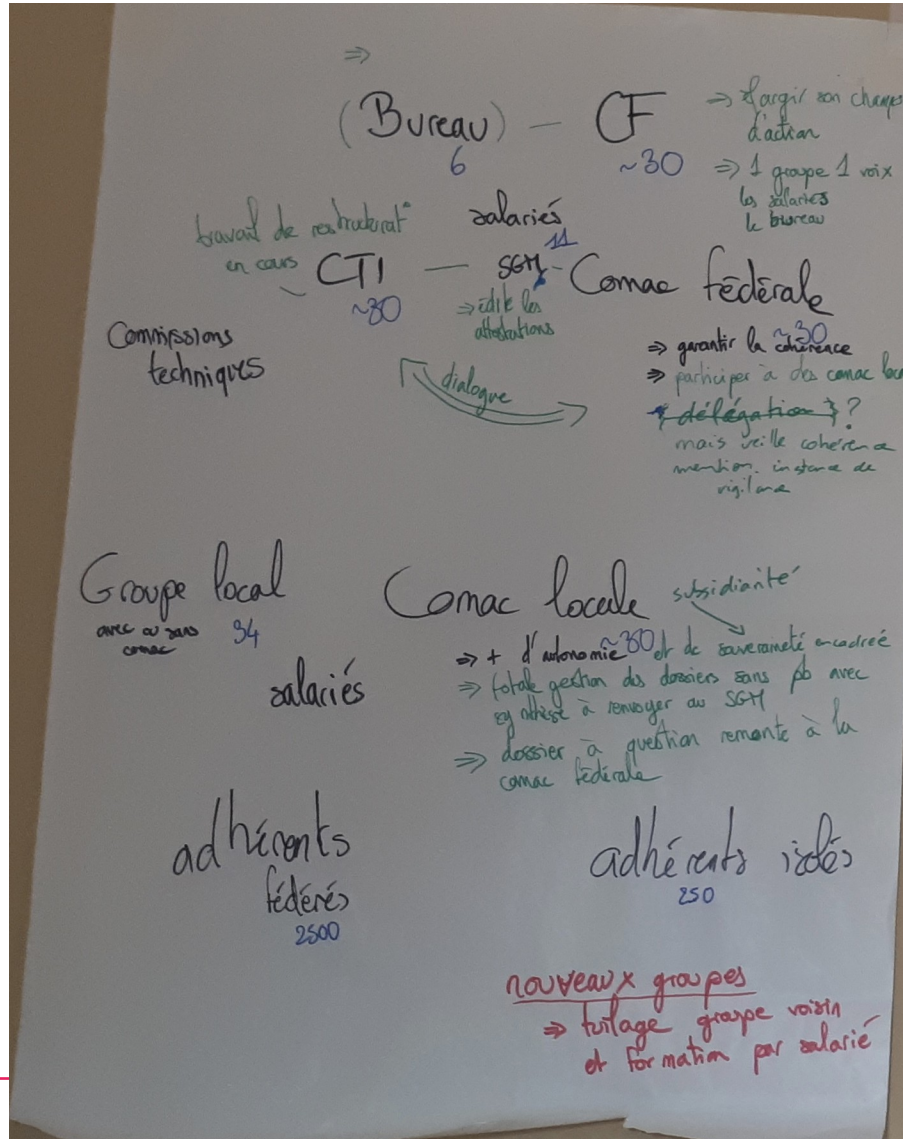 ⇒
(Bureau) — CF
6
~30
⇒ élargir son champs
d'action
⇒ 1 groupe 1 voix
les salariés
le bureau
travail de restructurat°
en cours
salariés
11
CTI — SGM - Comac fédérale
~30
⇒ édite les
attestations
~30
Commissions
techniques
dialogue
⇒ garantir la cohérence
⇒ participer à des comac loca
délégation ?
mais veille cohérence
mention. instance de
vigilance
Groupe local
avec ou sans
comac
94
salariés
Comac locale
subsidiarité
~80
⇒ + d'autonomie et de souveraineté encadreé
⇒ totale gestion des dossiers sans pb avec
synthèse à renvoyer au SGM
⇒ dossier à question remonte à la
comac fédérale
adhérents
fédérés
2500
adhérents isolés
250
nouveaux groupes
⇒ tuilage groupe voisin
et formation par salarié